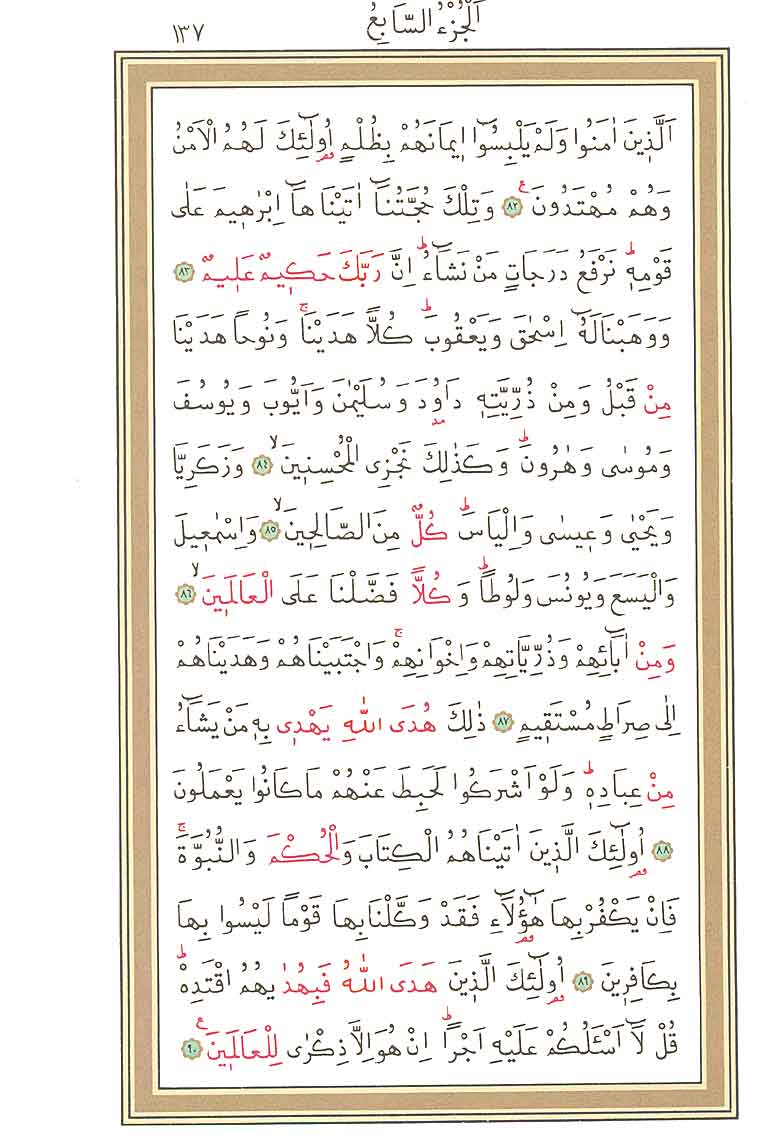 اَلْجُزْءُ السَّابِعُ
١٣٧
اَلَّذ۪ينَ اٰمَنُوا وَلَمْ يَلْبِسُٓوا ا۪يمَانَهُمْ بِظُلْمٍ اُو۬لٰٓئِكَ لَهُمُ الْاَمْنُ
وَهُمْ مُهْتَدُونَ ﴿٨٢﴾ وَتِلْكَ حُجَّتُنَٓا اٰتَيْنَاهَٓا اِبْرٰه۪يمَ عَلٰى
قَوْمِه۪ۜ نَرْفَعُ دَرَجَاتٍ مَنْ نَشَٓاءُۜ اِنَّ رَبَّكَ حَك۪يمٌ عَل۪يمٌ ﴿٨٣﴾
وَوَهَبْنَا لَهُٓ اِسْحٰقَ وَيَعْقُوبَۜ كُلاًّ هَدَيْنَاۚ وَنُوحاً هَدَيْنَا
مِنْ قَبْلُ وَمِنْ ذُرِّيَّتِه۪ دَاوُ۫دَ وَسُلَيْمٰنَ وَاَيُّوبَ وَيُوسُفَ
وَمُوسٰى وَهٰرُونَۜ وَكَذٰلِكَ نَجْزِي الْمُحْسِن۪ينَۙ ﴿٨٤﴾ وَزَكَرِيَّا
وَيَحْيٰى وَع۪يسٰى وَاِلْيَاسَۜ كُلٌّ مِنَ الصَّالِح۪ينَۙ ﴿٨٥﴾ وَاِسْمٰع۪يلَ
وَالْيَسَعَ وَيُونُسَ وَلُوطاًۜ وَكُلاًّ فَضَّلْنَا عَلَى الْعَالَم۪ينَۙ ﴿٨٦﴾
وَمِنْ اٰبَٓائِهِمْ وَذُرِّيَّاتِهِمْ وَاِخْوَانِهِمْۚ وَاجْتَبَيْنَاهُمْ وَهَدَيْنَاهُمْ
اِلٰى صِرَاطٍ مُسْتَق۪يمٍ ﴿٨٧﴾ ذٰلِكَ هُدَى اللّٰهِ يَهْد۪ي بِه۪ مَنْ يَشَٓاءُ
مِنْ عِبَادِه۪ۜ وَلَوْ اَشْرَكُوا لَحَبِطَ عَنْهُمْ مَا كَانُوا يَعْمَلُونَ
﴿٨٨﴾ اُو۬لٰٓئِكَ الَّذ۪ينَ اٰتَيْنَاهُمُ الْكِتَابَ وَالْحُكْمَ وَالنُّبُوَّةَۚ
فَاِنْ يَكْفُرْ بِهَا هٰٓؤُ۬لَٓاءِ فَقَدْ وَكَّلْنَا بِهَا قَوْماً لَيْسُوا بِهَا
بِكَافِر۪ينَ ﴿٨٩﴾ اُو۬لٰٓئِكَ الَّذ۪ينَ هَدَى اللّٰهُ فَبِهُدٰيهُمُ اقْتَدِهْۜ
قُلْ لَٓا اَسْـَٔلُكُمْ عَلَيْهِ اَجْراًۜ اِنْ هُوَ اِلَّا ذِكْرٰى لِلْعَالَم۪ينَ ﴿٩٠﴾